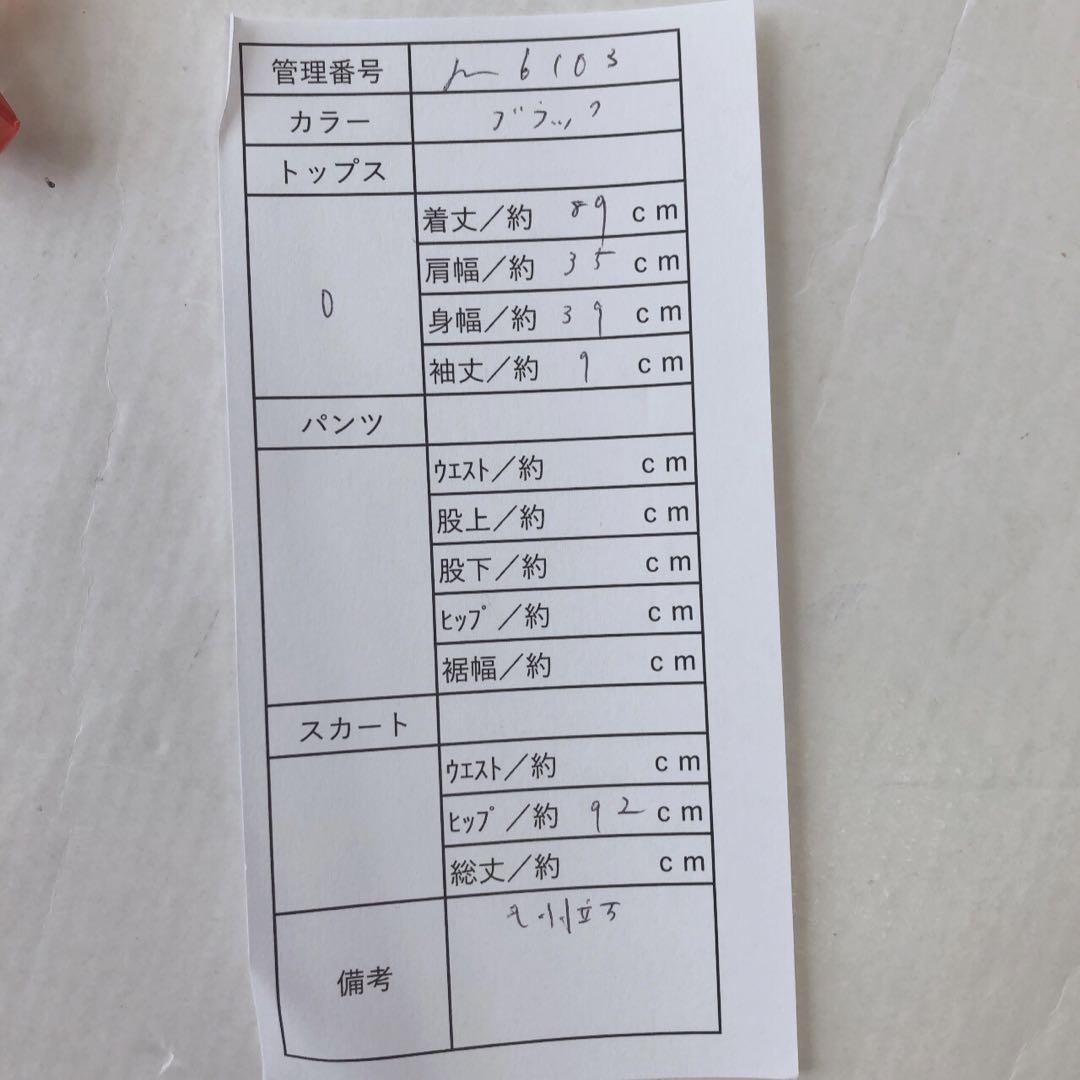 管理番号 6103
カラー ブラック
トップス
0
着丈／約 89 cm
肩幅／約 35 cm
身幅／約 39 cm
袖丈／約 9 cm
パンツ
ｳｴｽﾄ／約 cm
股上／約 cm
股下／約 cm
ﾋｯﾌﾟ／約 cm
裾幅／約 cm
スカート
ｳｴｽﾄ／約 cm
ﾋｯﾌﾟ／約 92 cm
総丈／約 cm
備考